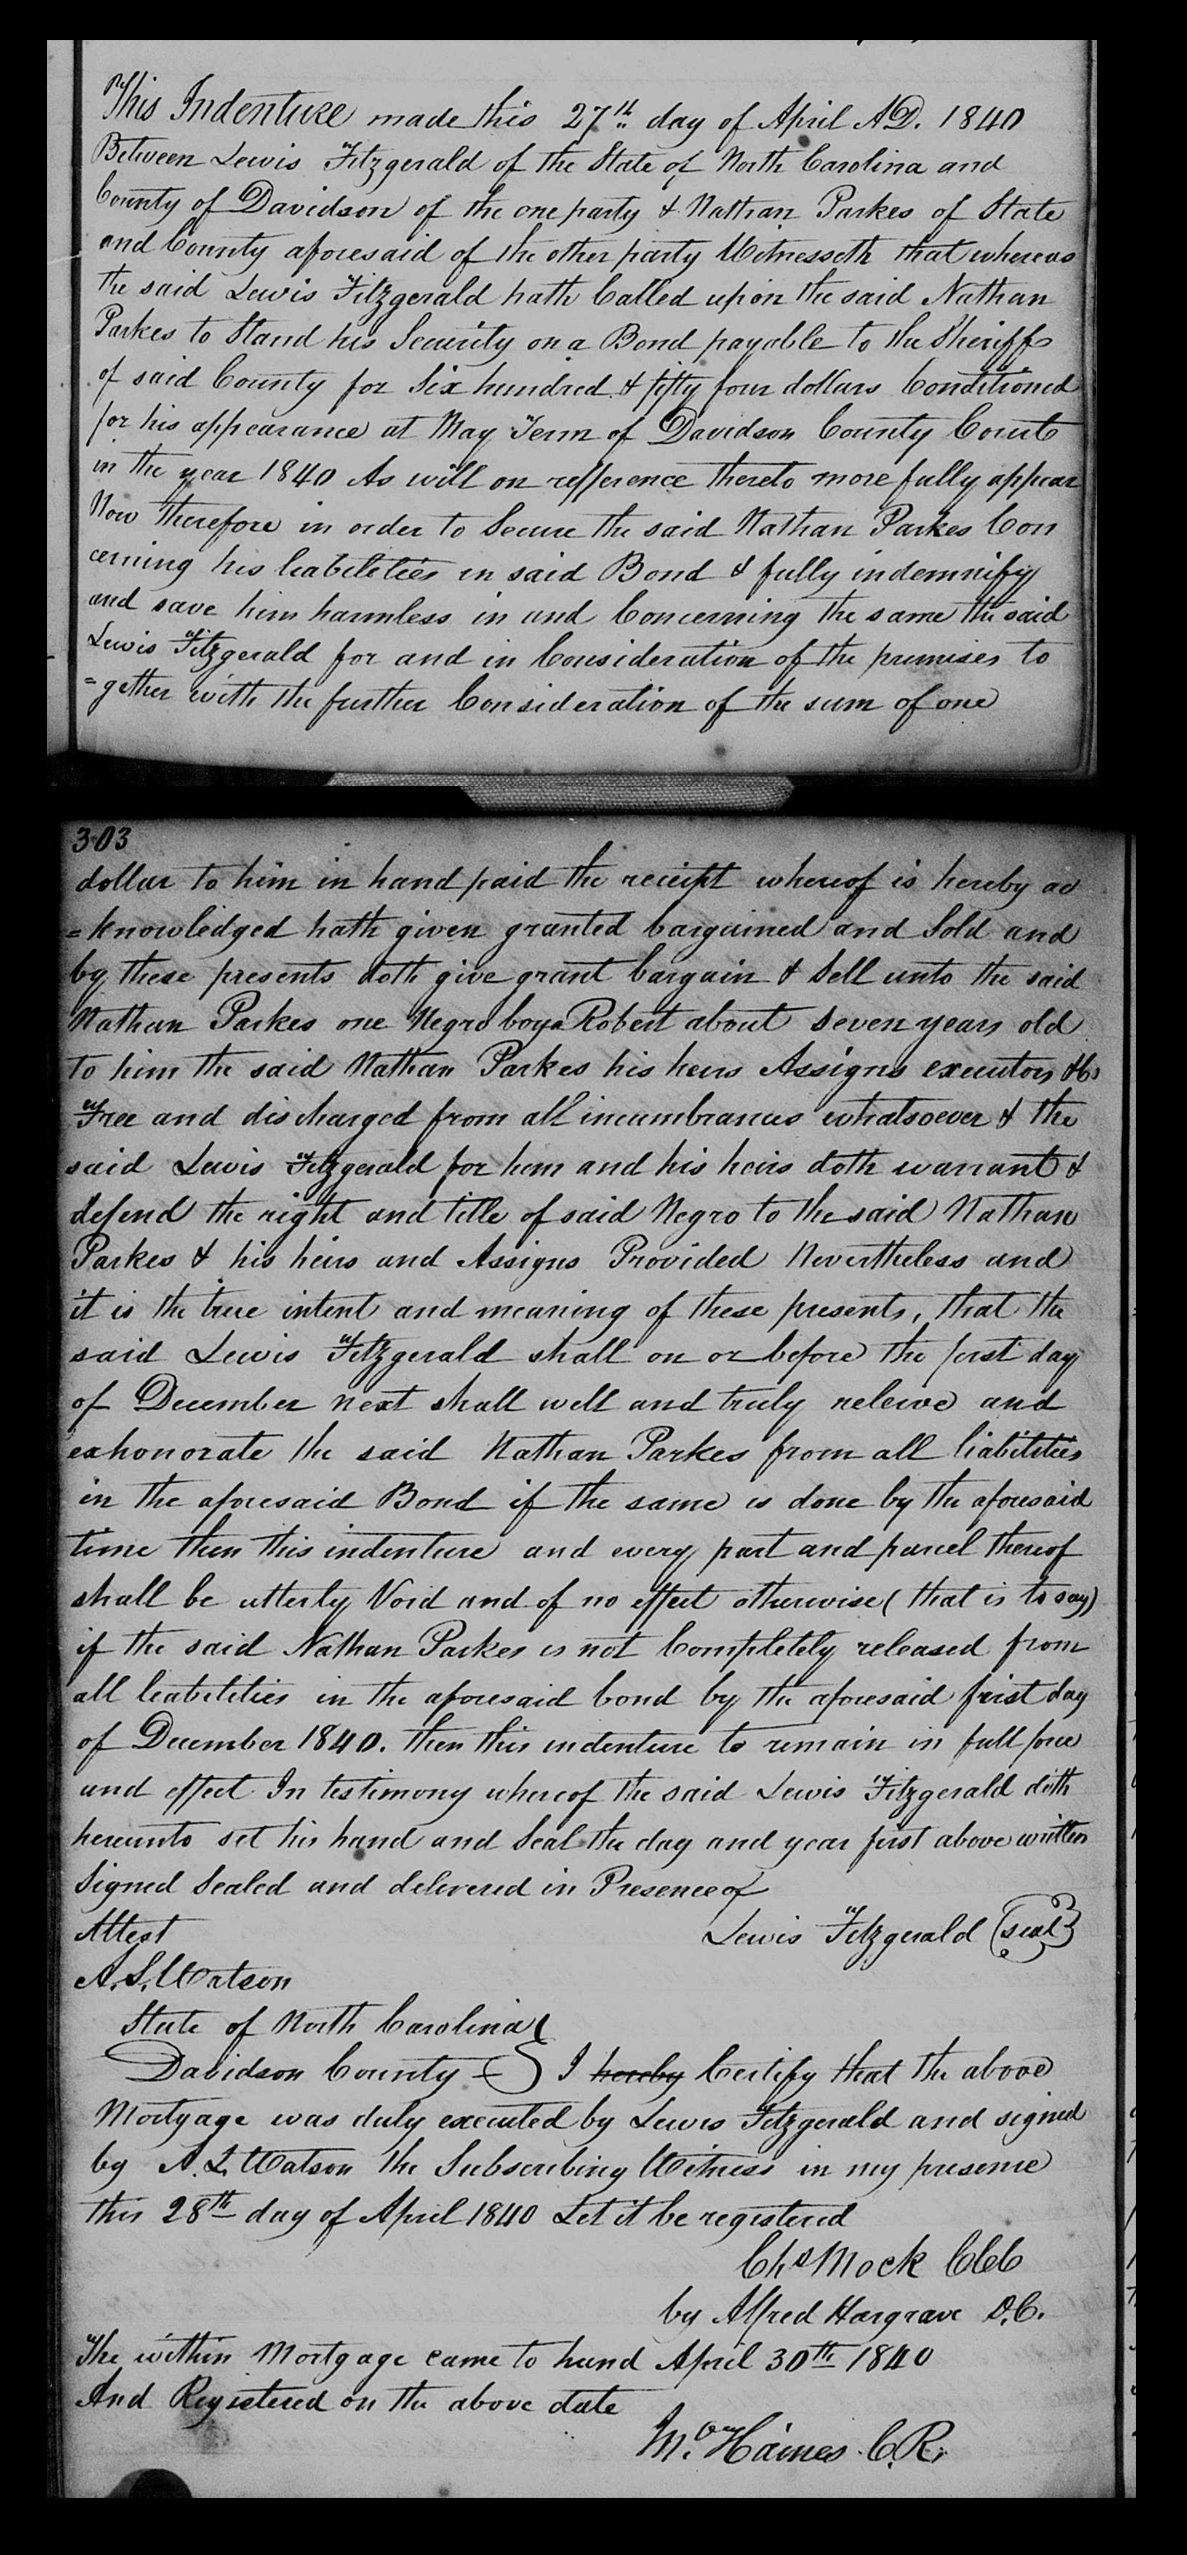 This Indenture made this 27th day of April A.D. 1840
Between Lewis Fitzgerald of the State of North Carolina and
County of Davidson of the one party & Nathan Parkes of State
and County aforesaid of the other party Witnesseth that whereas
the said Lewis Fitzgerald hath Called upon the said Nathan
Parkes to Stand his Security on a Bond payable to the Sheriff
of said County for Six hundred & fifty four dollars Conditioned
for his appearance at May Term of Davidson County Court
in the year 1840 As will on refference thereto more fully appear
Now therefore in order to Secure the said Nathan Parkes Con
cerning his liabilities in said Bond & fully indemnify
and save him harmless in and Concerning the same the said
Lewis Fitzgerald for and in Consideration of the premises to
=gether with the further Consideration of the sum of one
303
dollar to him in hand paid the receipt whereof is hereby ac
=knowledged hath given granted bargained and Sold and
by these presents doth give grant bargain & Sell unto the said
Nathan Parkes one Negro boy Robert about seven years old
to him the said Nathan Parkes his heirs Assigns executors &c
Free and discharged from all incumbrances whatsoever & the
said Lewis Fitzgerald for him and his heirs doth warrant &
defend the right and title of said Negro to the said Nathan
Parkes & his heirs and Assigns Provided Nevertheless and
it is the true intent and meaning of these presents, that the
said Lewis Fitzgerald shall on or before the first day
of December next shall well and truly releive and
exhonorate the said Nathan Parkes from all liabilities
in the aforesaid Bond if the same is done by the aforesaid
time then this indenture and every part and parcel thereof
shall be utterly Void and of no effect otherwise (that is to say)
if the said Nathan Parkes is not Completely released from
all liabilities in the aforesaid bond by the aforesaid first day
of December 1840. then this indenture to remain in full force
and effect In testimony whereof the said Lewis Fitzgerald doth
hereunto set his hand and Seal the day and year first above written
Signed Sealed and delivered in Presence of
Attest Lewis Fitzgerald (seal)
A. L. Watson
State of North Carolina
Davidson County } I hereby Certify that the above
Mortgage was duly executed by Lewis Fitzgerald and signed
by A. L. Watson the Subscribing Witness in my presence
this 28th day of April 1840 Let it be registered
Chs Mock CCC
by Alfred Hargrave D.C.
The within Mortgage came to hand April 30th 1840
And Registered on the above date
Haines C.R.